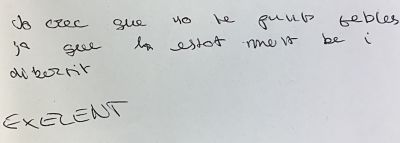 Jo crec que no te punts febles
ja que ha estat molt be i
divertit
EXELENT